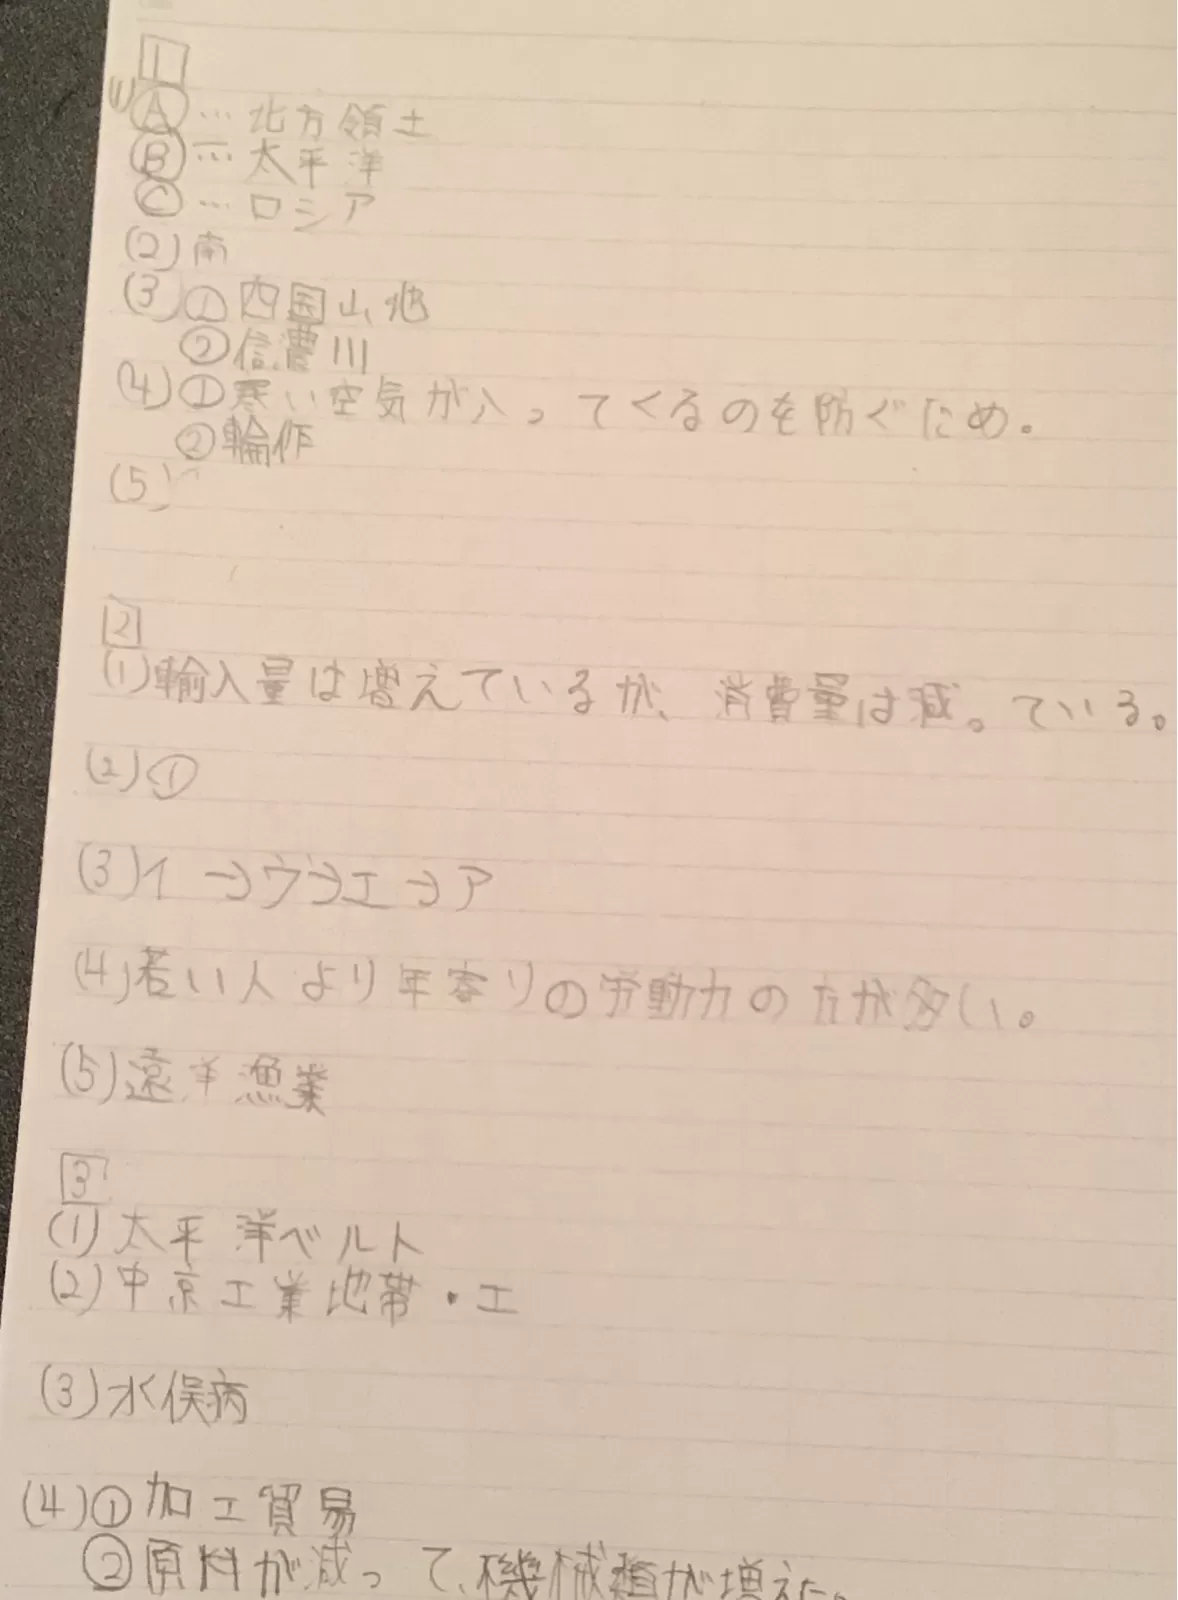 1
(1)Ⓐ…北方領土
Ⓑ…太平洋
Ⓒ…ロシア
(2)南
(3)①四国山地
②信濃川
(4)①寒い空気が入ってくるのを防ぐため。
②輪作
(5)
2
(1)輸入量は増えているが、消費量は減っている。
(2)①
(3)イ→ウ→エ→ア
(4)若い人より年寄りの労働力の方が多い。
(5)遠洋漁業
3
(1)太平洋ベルト
(2)中京工業地帯・エ
(3)水俣病
(4)①加工貿易
②原料が減って、機械類が増えた。